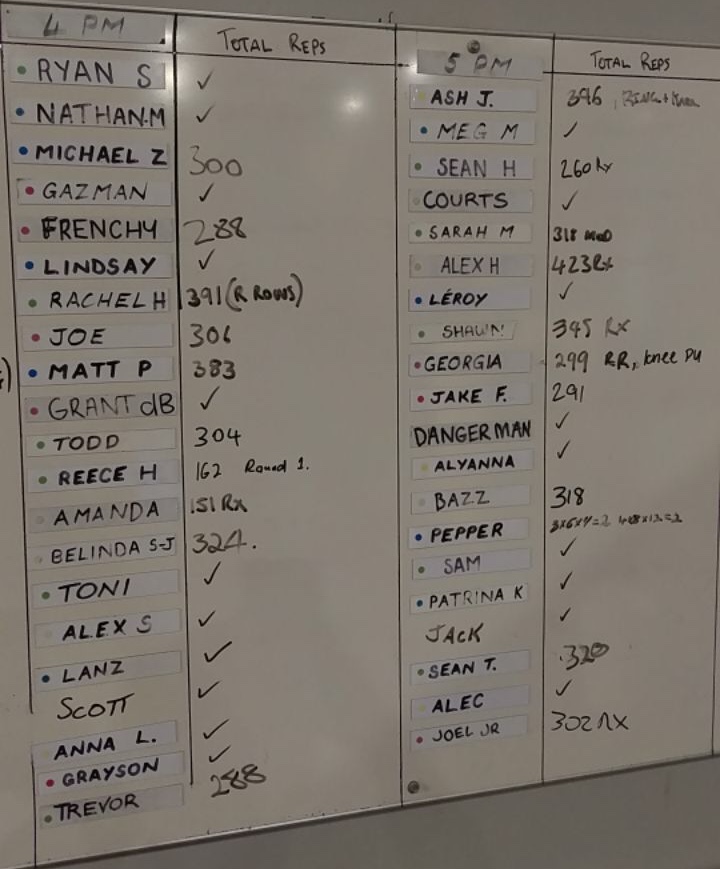 4 PM TOTAL REPS
RYAN S ✓
NATHAN.M ✓
MICHAEL Z 300
GAZMAN ✓
FRENCHY 288
LINDSAY ✓
RACHEL H 391 (R ROWS)
JOE 306
MATT P 383
GRANT dB ✓
TODD 304
REECE H 162 Round 1.
AMANDA 151 Rx
BELINDA S-J 324.
TONI ✓
ALEX S ✓
LANZ ✓
SCOTT ✓
ANNA L. ✓
GRAYSON ✓
TREVOR 288
5 PM TOTAL REPS
ASH J. 396
MEG M ✓
SEAN H 260 Rx
COURTS ✓
SARAH M 318 MOD
ALEX H 423 Rx
LÉROY ✓
SHAWN 345 RX
GEORGIA 299 RR, knee PU
JAKE F. 291
DANGERMAN ✓
ALYANNA ✓
BAZZ 318
PEPPER
SAM ✓
PATRINA K ✓
JACK ✓
SEAN T. 320
ALEC ✓
JOEL JR 302 RX